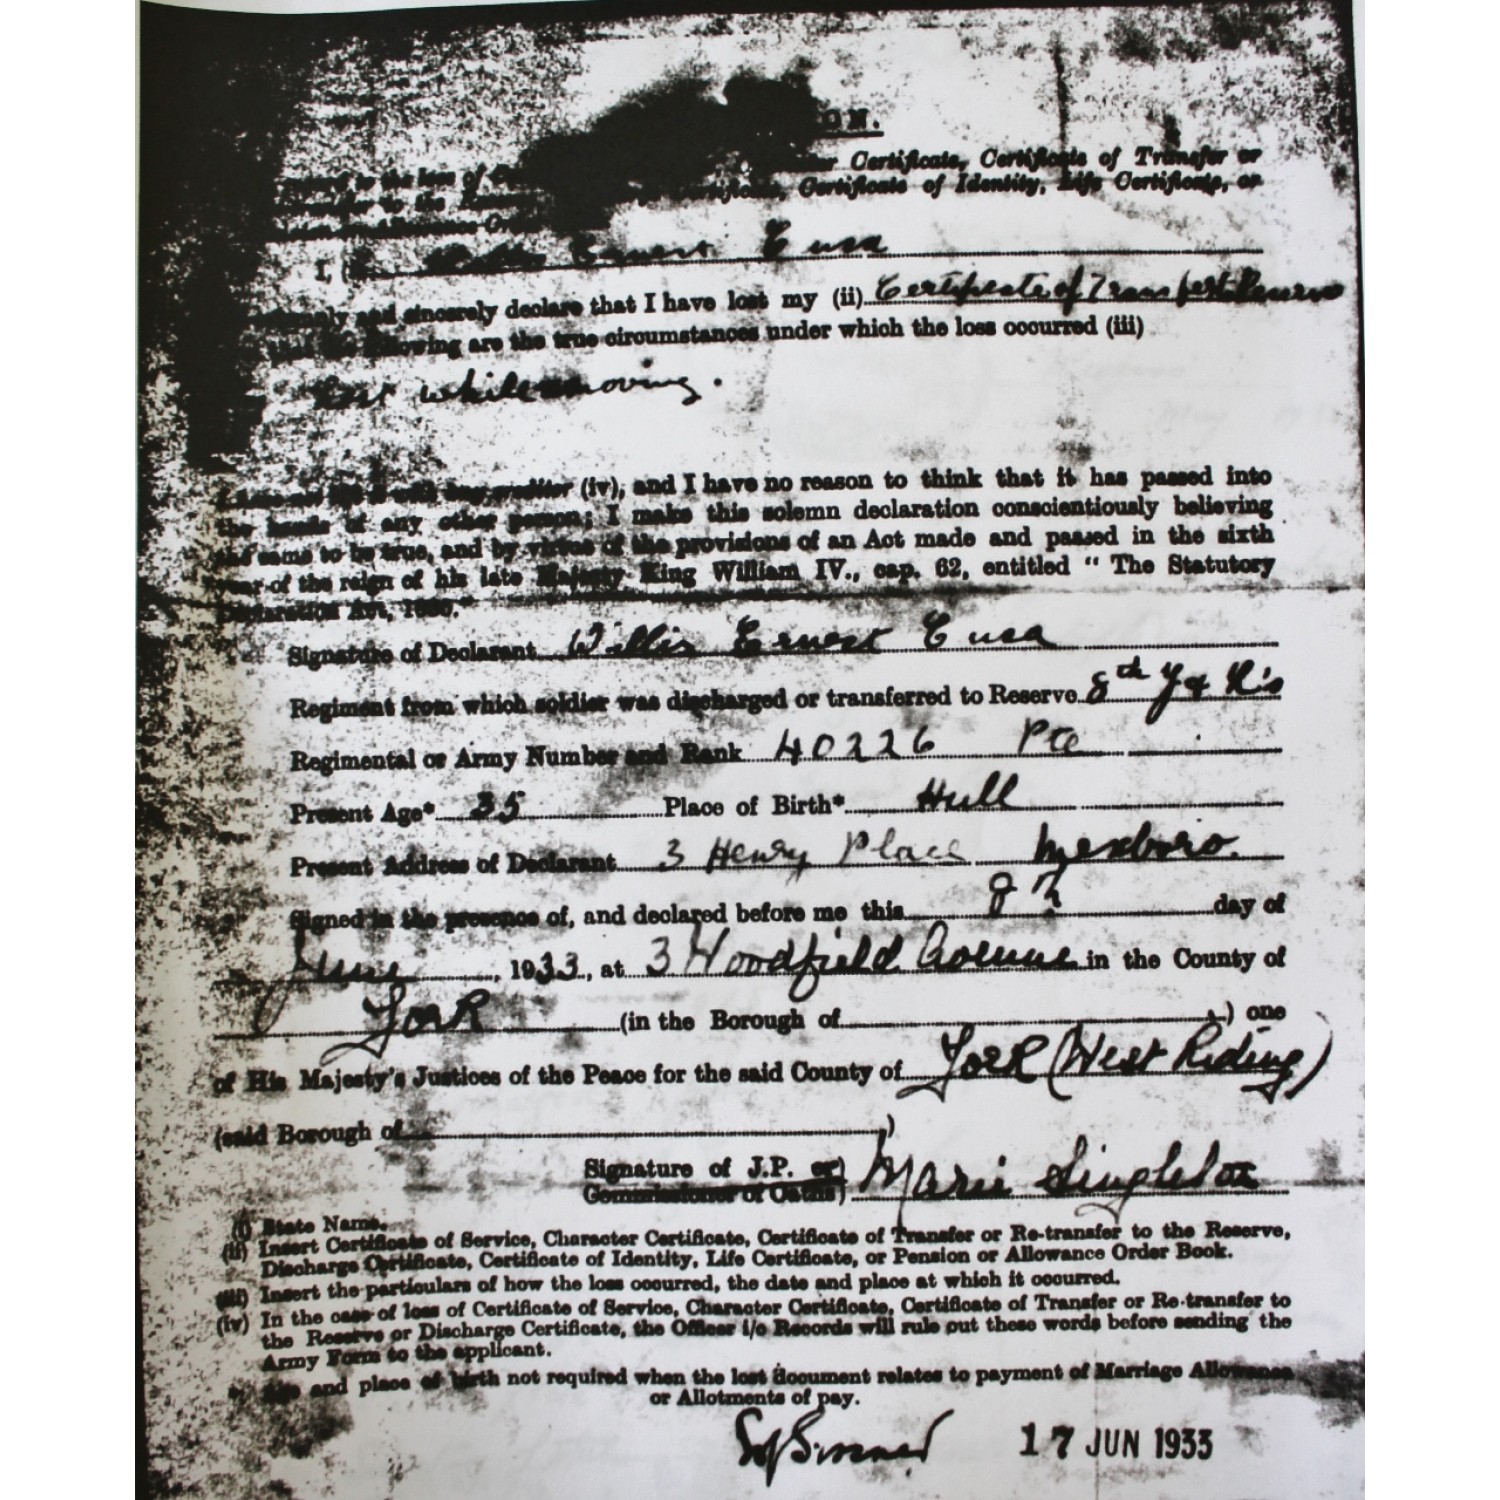 ON.
Certificate, Certificate of Transfer or
to the loss of Certificate, Certificate of Identity, Life Certificate, or
I, Ernest Cusa
and sincerely declare that I have lost my (ii) Certificate of Transfer to Reserve
following are the true circumstances under which the loss occurred (iii)
Lost while moving.
(iv), and I have no reason to think that it has passed into
the hands of any other person; I make this solemn declaration conscientiously believing
the same to be true, and by virtue of the provisions of an Act made and passed in the sixth
year of the reign of his late Majesty King William IV., cap. 62, entitled "The Statutory
Declaration Act,
Signature of Declarant Willis Ernest Cusa
Regiment from which soldier was discharged or transferred to Reserve 8th Y & L's
Regimental or Army Number and Rank 40226 Pte
Present Age* 35 Place of Birth* Hull
Present Address of Declarant 3 Henry Place Mexboro.
Signed in the presence of, and declared before me this 8th day of
June, 1933, at 3 Woodfield Avenue in the County of
York (in the Borough of ) one
of His Majesty's Justices of the Peace for the said County of York (West Riding)
(said Borough of )
Signature of J.P. or)
Commissioner of Oaths) Marie Singleton
(i) State Name.
(ii) Insert Certificate of Service, Character Certificate, Certificate of Transfer or Re-transfer to the Reserve,
Discharge Certificate, Certificate of Identity, Life Certificate, or Pension or Allowance Order Book.
(iii) Insert the particulars of how the loss occurred, the date and place at which it occurred.
(iv) In the case of loss of Certificate of Service, Character Certificate, Certificate of Transfer or Re-transfer to
the Reserve or Discharge Certificate, the Officer i/c Records will rule out these words before sending the
Army Form to the applicant.
Age and place of birth not required when the lost document relates to payment of Marriage Allowance
or Allotments of pay.
17 JUN 1933